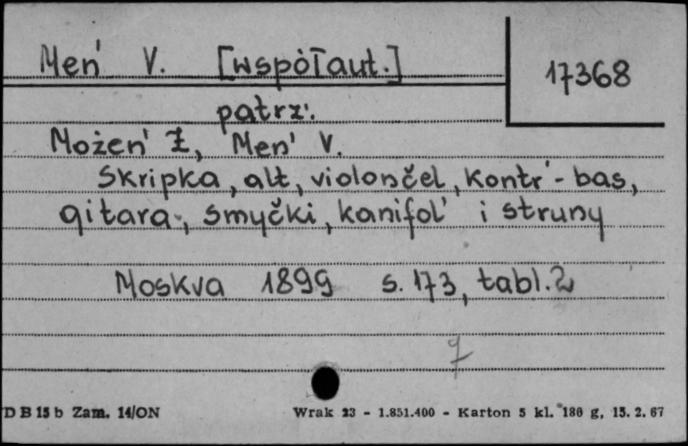 Men' V. [współaut.]
17368
patrz:
Możen' Ż, Men' V.
Skripka, alt, violončel, kontr'-bas,
gitara, smyčki, kanifol' i struny
Moskva 1899 s. 173, tabl. 2
D B 15 b Zam. 14/ON Wrak 23 - 1.851.400 - Karton 5 kl. 180 g, 15. 2. 67